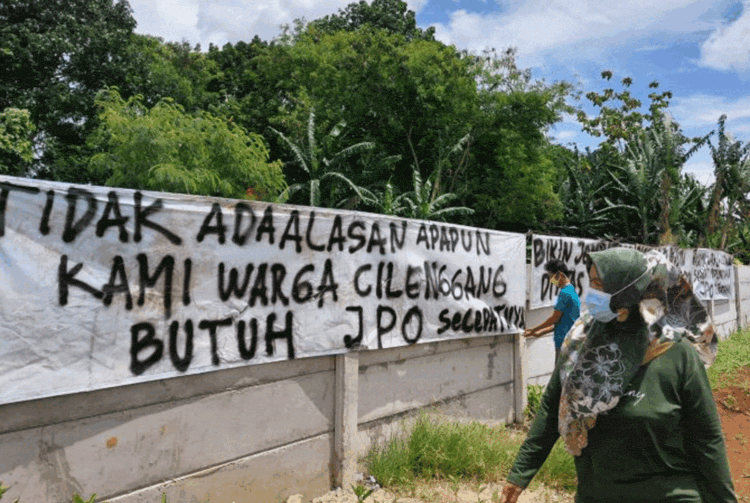 TIDAK ADA ALASAN APAPUN
KAMI WARGA CILENGGANG
BUTUH JPO SECEPATNYA
BIKIN